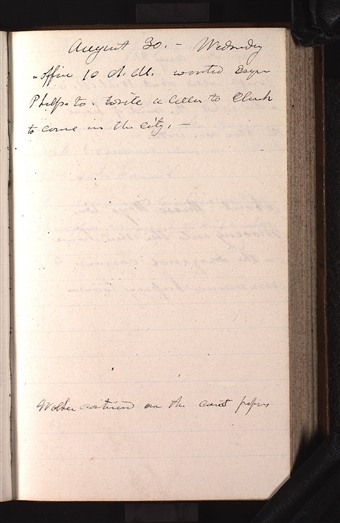 August 30. - Wednesday
office 10 A.M. wanted
Phelps to write a letter to Clark
to come in the city. -
on the court papers